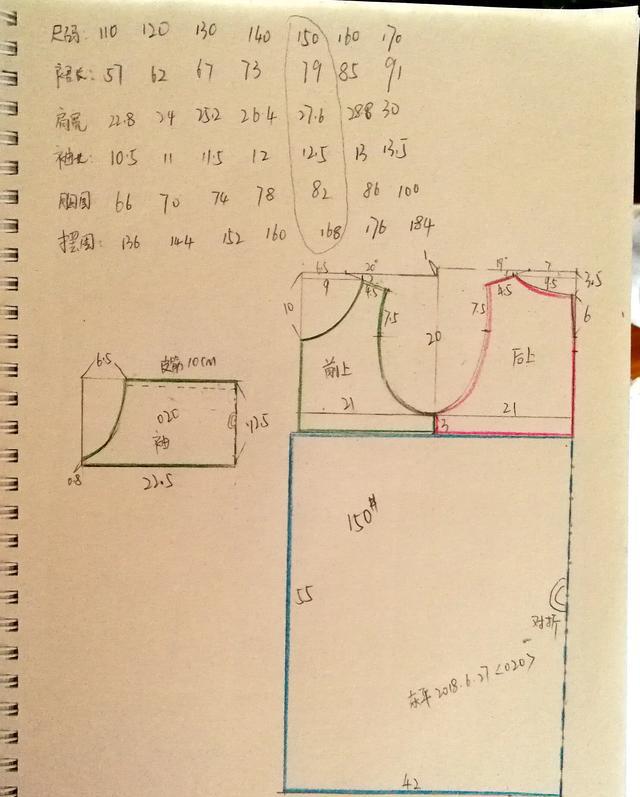 尺码: 110 120 130 140 150 160 170
裙长: 57 62 67 73 79 85 91
肩宽 22.8 24 25.2 26.4 27.6 28.8 30
袖长: 10.5 11 11.5 12 12.5 13 13.5
胸围 66 70 74 78 82 86 100
摆围: 136 144 152 160 168 176 184
6.5 20° 1 19° 7
9 4.5 4.5 9.5 3.5
10 7.5 20 7.5 6
前上 后上
21 21
3
6.5 皮筋10cm
020
袖
12.5
0.8 22.5
150#
55
对折
2018.6.27<020>
42